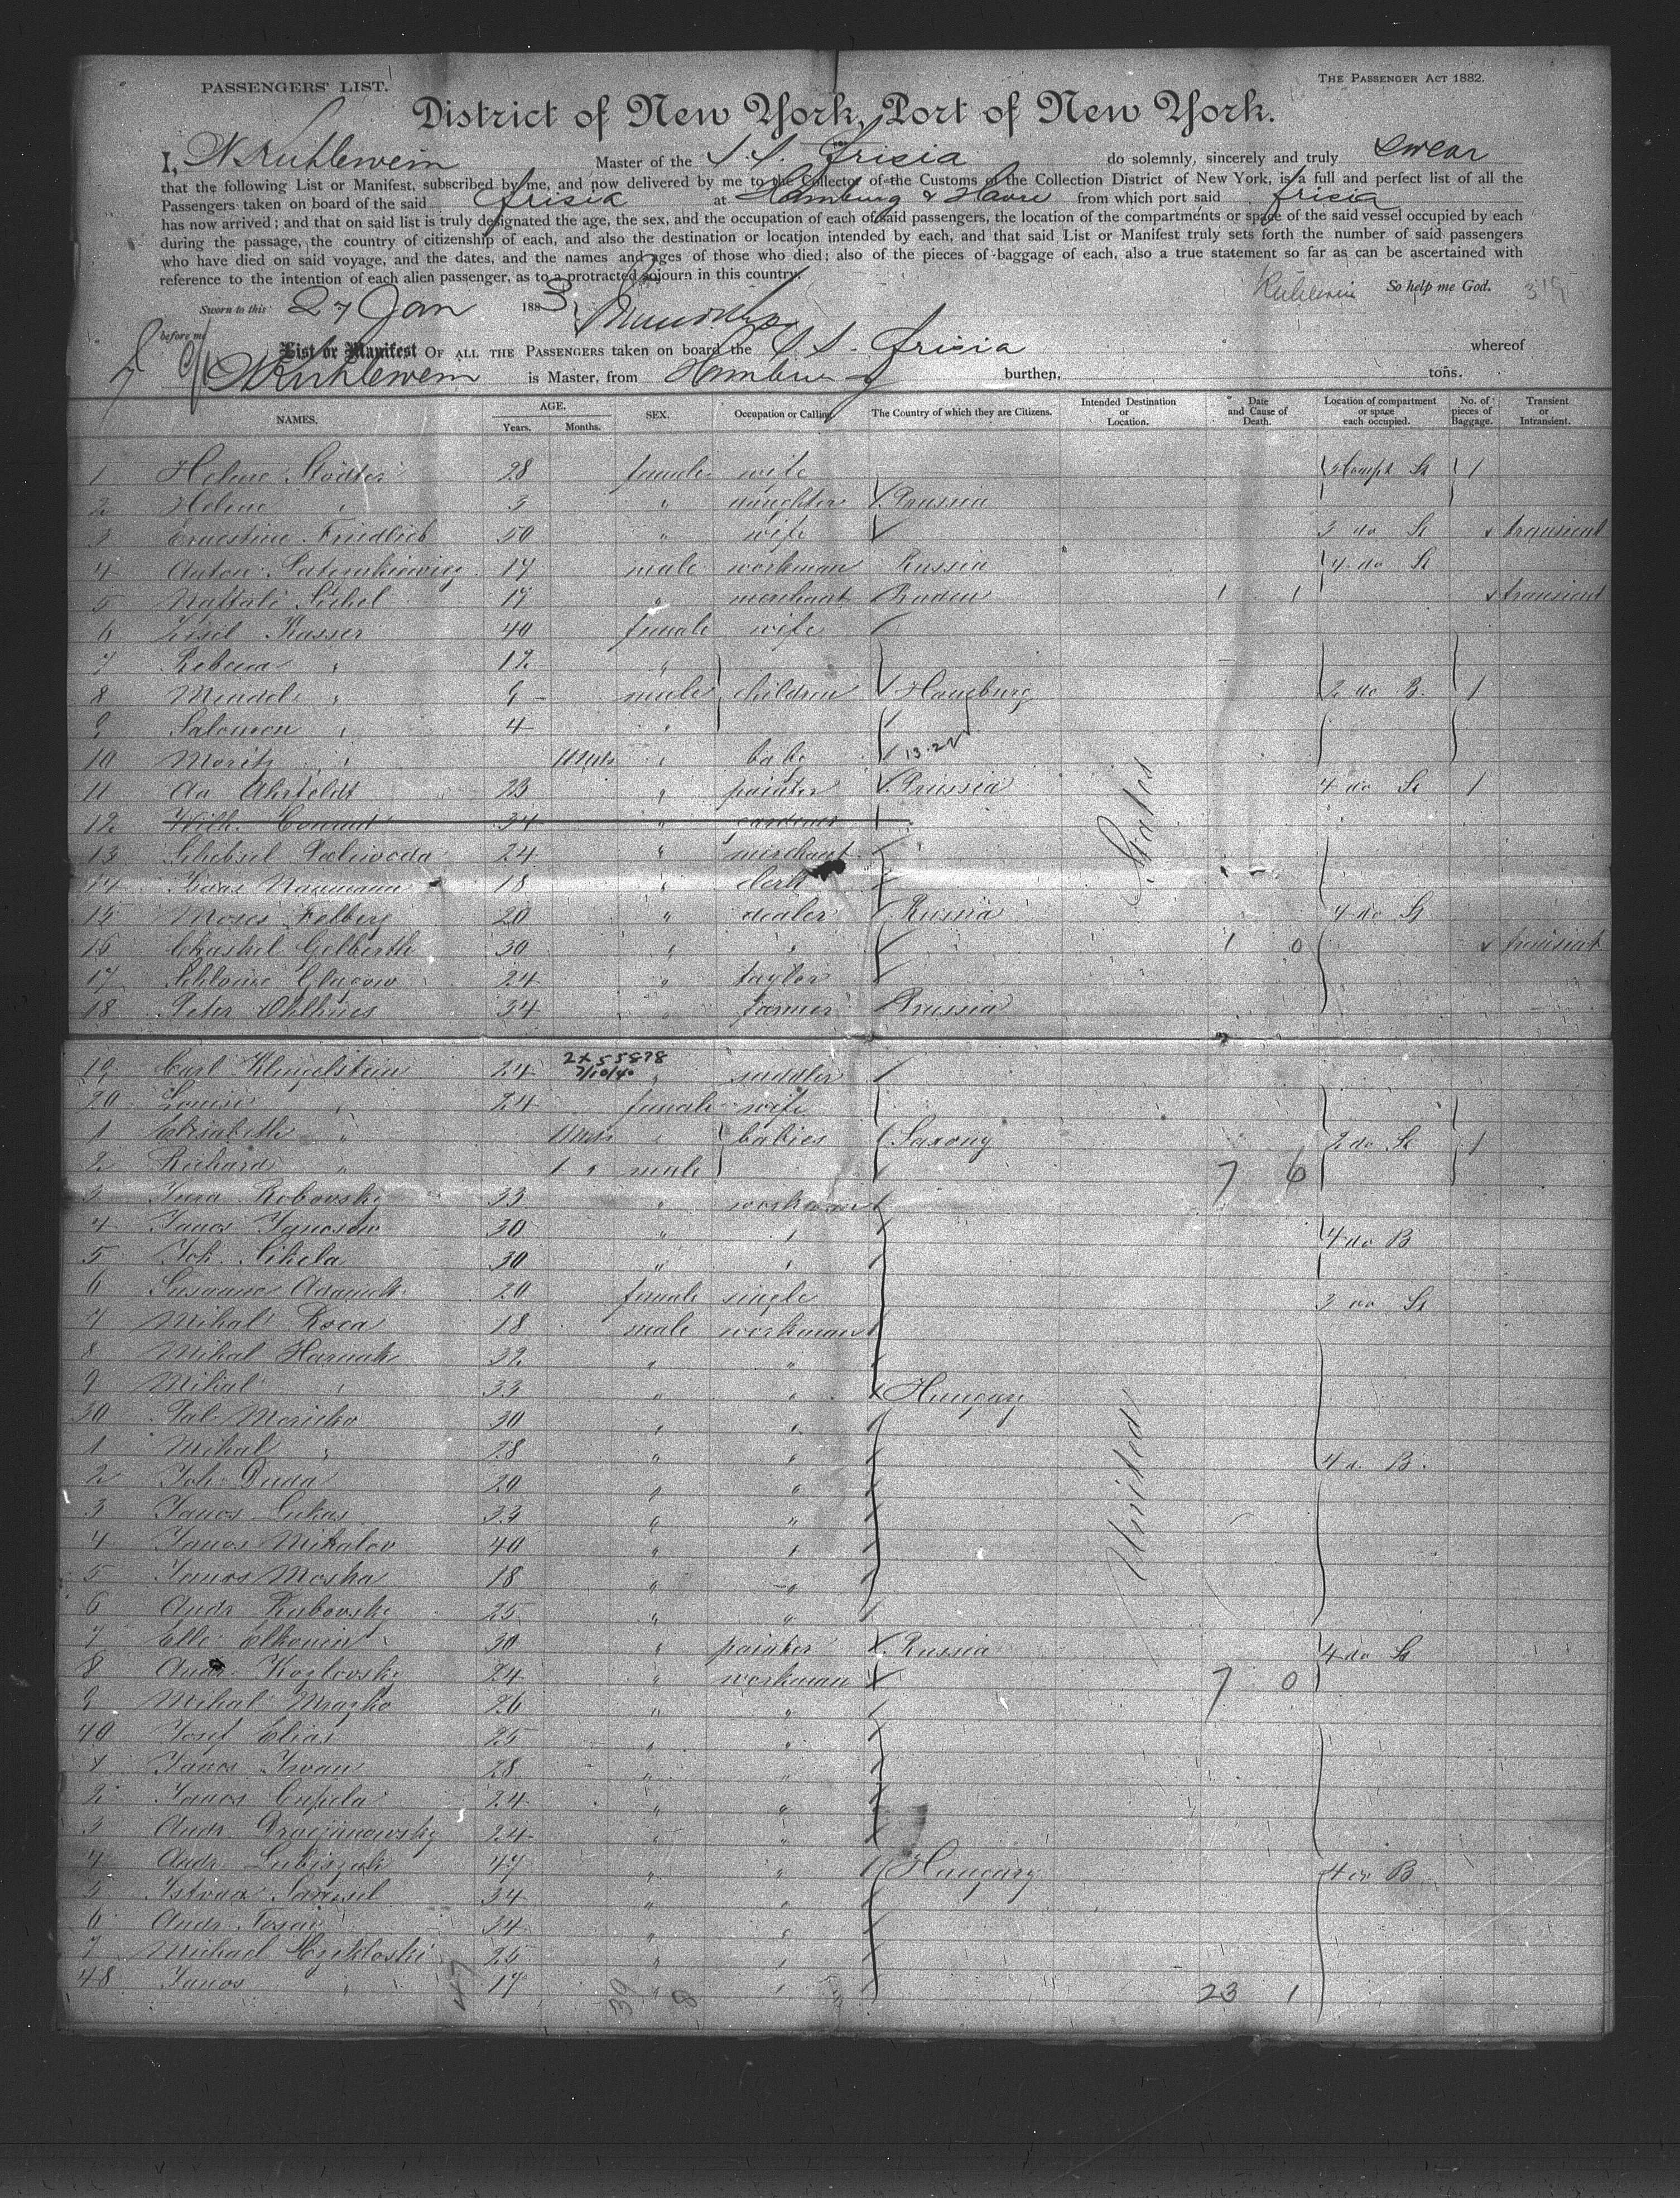 PASSENGERS' LIST.
THE PASSENGER ACT 1882.
District of New York, Port of New York.
I, Master of the S.S. Frisia do solemnly, sincerely and truly swear
that the following List or Manifest, subscribed by me, and now delivered by me to the Collector of the Customs of the Collection District of New York, is a full and perfect list of all the
Passengers taken on board of the said Frisia at Hamburg & Havre from which port said Frisia
has now arrived; and that on said list is truly designated the age, the sex, and the occupation of each of said passengers, the location of the compartments or space of the said vessel occupied by each
during the passage, the country of citizenship of each, and also the destination or location intended by each, and that said List or Manifest truly sets forth the number of said passengers
who have died on said voyage, and the dates, and the names and ages of those who died; also of the pieces of baggage of each, also a true statement so far as can be ascertained with
reference to the intention of each alien passenger, as to a protracted sojourn in this country.
So help me God. 319
Sworn to this 27 Jan 1883
before me
List or Manifest OF ALL THE PASSENGERS taken on board the S S. Frisia whereof
is Master, from Hamburg burthen, tons.
NAMES. AGE. Years. Months. SEX. Occupation or Calling. The Country of which they are Citizens. Intended Destination or Location. Date and Cause of Death. Location of compartment or space each occupied. No. of pieces of Baggage. Transient or Intransient.
1 Helene 28 female wife St 1
2 Helene " 3 " daughter Prussia
3 Ernestine Friedlieb 50 " wife 3 do St transient
4 Anton 17 male workman Russia 4 do St
5 Naftali Sichel 17 " merchant Baden 1 1 transient
6 Kasser 40 female wife
7 Rebecca " 12 "
8 Mendel " 9 male children Hamburg 2 do B. 1
9 Salomon " 4 "
10 Moritz " 11 Mth " babe 13-24
11 Ad Ahrfeldt 23 " painter Prussia 4 do St 1
12 Wilh. Conrad 34 "
13 24 " merchant
14 Naumann 18 " clerk
15 Moses Felberg 20 " dealer Russia 4 do St
16 30 " " 1 0 transient
17 24 " taylor
18 Peter 34 " farmer Prussia
2x55878
7/10/40
19 Carl Klingelstein 24 " saddler
20 Louise " 24 female wife
1 Elisabeth " 11 Mth " babies Saxony 2 do St 1
2 Richard " 1 " male 7 6
3 Jura Robovsky 33 " workman
4 Janos 30 " " 4 do B
5 Joh. Sikela 30 " "
6 Susanna 20 female single 3 do St
7 Mihal 18 male workman
8 Mihal Harnak 32 " "
9 Mihal " 33 " " Hungary
30 Pal 30 " "
1 Mihal " 28 " " 4 do B.
2 Joh. Duda 20 " "
3 Janos Lukas 33 " "
4 Janos Mihalov 40 " "
5 Janos Moska 18 " "
6 Andr Rubovsky 25 " "
7 Elle Elkonin 30 " painter Russia 4 do St
8 Andr. Kozlovsky 24 " workman 7 0
9 Mihal Mrazko 26 " "
40 Josef Elias 25 " "
1 Janos Ivan 28 " "
2 Janos Cupela 24 " "
3 Andr. 24 " "
4 Andr. Lubiszak 47 " " Hungary 4 do B
5 Istvan Samuel 34 " "
6 Andr. 24 " "
7 Michael 25 " "
48 Janos " 17 " "
United States
47 39 8 23 1